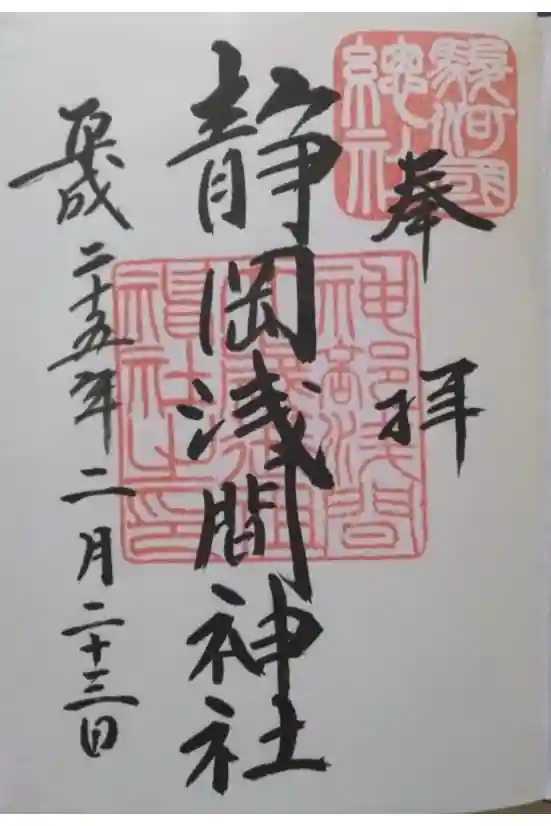 奉拝
駿河國
總社
静岡浅間神社
神部浅間
大歳御祖
神社之印
平成二十五年二月二十三日